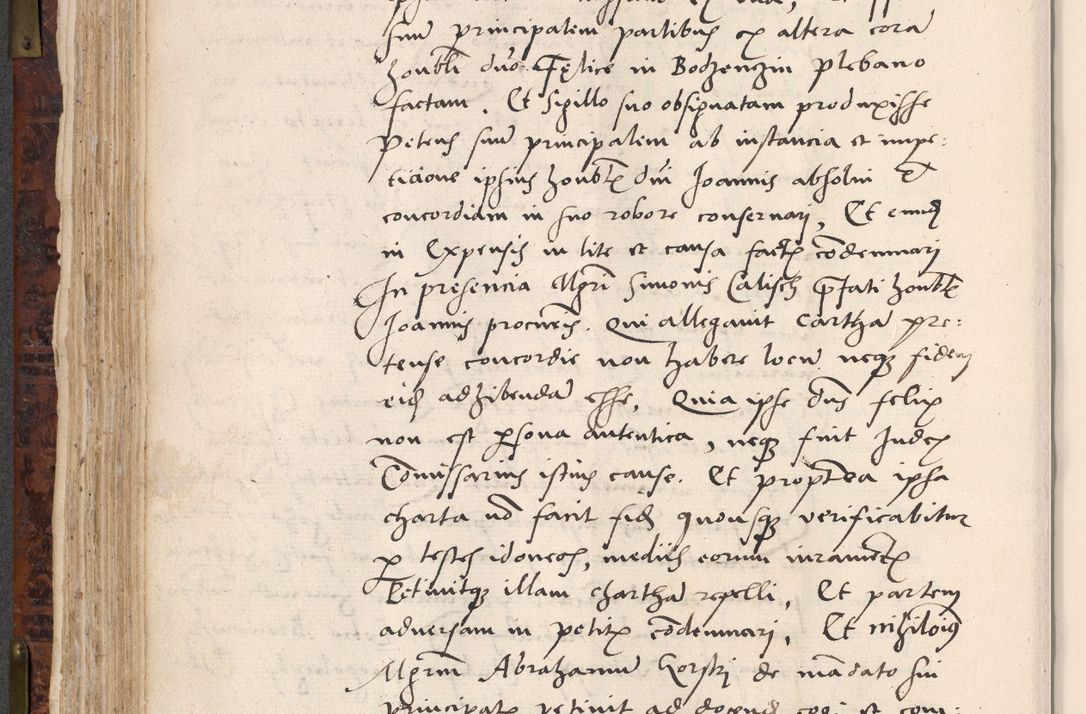 suu principalem partibus ex altera corā
honbli dño Fęlice in Bodzenczin plebano
factam. Et Sigillo suo obsignatam produxisse
petens suū principalem ab instancia et impe:
ticione ipsius honblis dni Joannis absolui Et
concordiam in suo robore conseruari, Et eundē
in Expensis in lite et causa factis cōdemnari
In presencia Mgri Simonis Calisch p̄fati honblis
Joannis procuris. Qui allegauit cartha pre:
tense concordie non habere locū neq fidem
eidē adhibendā esse, Quia ipse dn̄s felix
non est persona autentica, neq fuit Judex
Comissarius istius cause. Et propterea ipsa
charta nō facit fidē quousq verificabitur
p testes idoneos, mediis eorum iuramentis
Petiuitq illam chartha repelli, Et partem
aduersam in petitis cōdemnari, Et nihilois
Mgrum Abrahamū Gorski de mādato sui
principalis petiuit ad docend cogi et com: